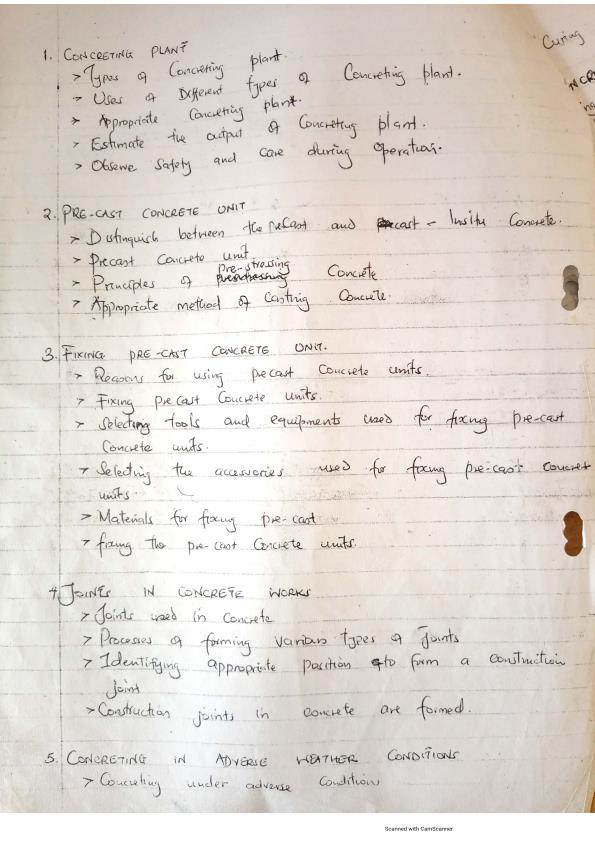 Curing
1. CONCRETING PLANT
> Types of Concreting plant.
> Uses of Different types of Concreting plant.
> Appropriate Concreting plant.
> Estimate the output of Concreting plant.
> Observe Safety and care during operation.
2. PRE-CAST CONCRETE UNIT
> Distinguish between the precast and cast - Insitu Concrete.
> Precast Concrete unit.
> Principles of pre-stressing Concrete
> Appropriate method of Casting Concrete.
3. FIXING PRE-CAST CONCRETE UNIT.
> Reasons for using precast Concrete units.
> Fixing pre cast Concrete units.
> Selecting tools and equipments used for fixing pre-cast
Concrete units.
> Selecting the accessories used for fixing pre-cast concret
units.
> Materials for fixing pre-cast
> fixing the pre-cast Concrete units.
4. JOINTS IN CONCRETE WORKS
> Joints used in Concrete
> Processes of forming various types of Joints
> Identifying appropriate position to form a construction
joint
> Construction joints in concrete are formed.
5. CONCRETING IN ADVERSE WEATHER CONDITIONS
> Concreting under adverse Condition
Scanned with CamScanner